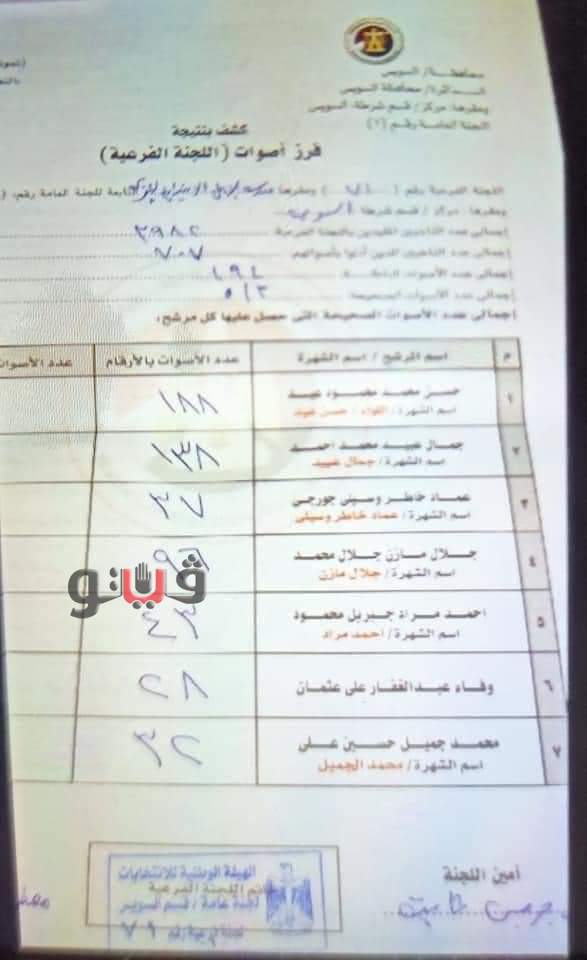 محافظة/ السويس
الدائرة/ محافظة السويس
ومقرها: مركز/ قسم شرطة: السويس
اللجنة العامة رقم (١)
كشف بنتيجة
فرز أصوات (اللجنة الفرعية)
اللجنة الفرعية رقم ( ) ومقرها تابعة للجنة العامة رقم، (
ومقرها: مركز / قسم شرطة السويس
إجمالي عدد الناخبين المقيدين باللجنة الفرعية ٣٩٨٢
إجمالي عدد الناخبين الذين أدلوا بأصواتهم ٧٠٧
إجمالي عدد الأصوات الباطلة ١٩٤
إجمالي عدد الأصوات الصحيحة ٥١٣
إجمالي عدد الأصوات الصحيحة التى حصل عليها كل مرشح:
م اسم المرشح / اسم الشهرة عدد الأصوات بالأرقام عدد الأصوات
١ حسن محمد محمود عيد ١٨٨
اسم الشهرة / اللواء / حسن عيد
٢ جمال عبيد محمد احمد ١٣٨
اسم الشهرة / جمال عبيد
٣ عماد خاطر وسيلى جورجى ٣٧
اسم الشهرة / عماد خاطر وسيلى
٤ جلال مازن جلال محمد
اسم الشهرة / جلال مازن
ڤيتو
٥ احمد مراد جبريل محمود ٤٣
اسم الشهرة / احمد مراد
٦ وفاء عبدالغفار على عثمان ٢٨
٧ محمد جميل حسين على ٣٢
اسم الشهرة / محمد الجميل
أمين اللجنة
الهيئة الوطنية للانتخابات
خاتم اللجنة الفرعية
لجنة عامة / قسم السويس
لجنة فرعية رقم ٧١